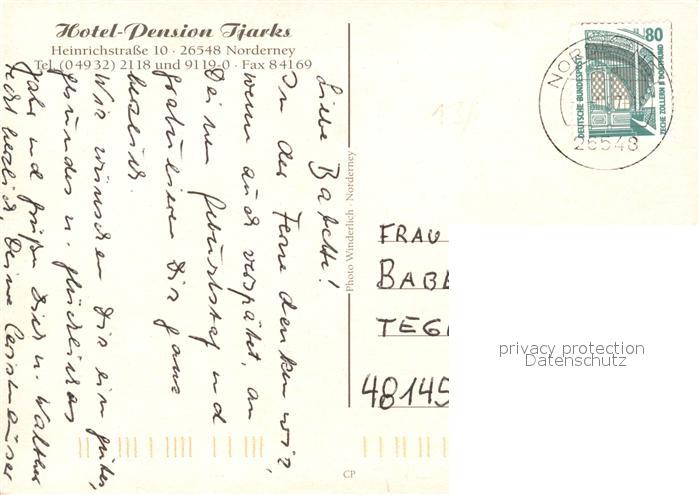 Hotel-Pension Tjarks
Heinrichstraße 10 · 26548 Norderney
Tel. (04932) 2118 und 9119-0 · Fax 84169
Liebe
In der Ferne denken wir,
wenn auch verspätet, an
Deinen Geburtstag und
gratulieren Dir ganz
herzlich.
Wir wünschen Dir ein gutes,
gesundes u. glückliches
Jahr und grüßen Dich u. Walther
recht herzlich, Deine
Photo Winderlich · Norderney
CP
NORD
26548
80
DEUTSCHE BUNDESPOST
ZECHE ZOLLERN II DORTMUND
FRAU
BABE
TEG
48145
privacy protection
Datenschutz